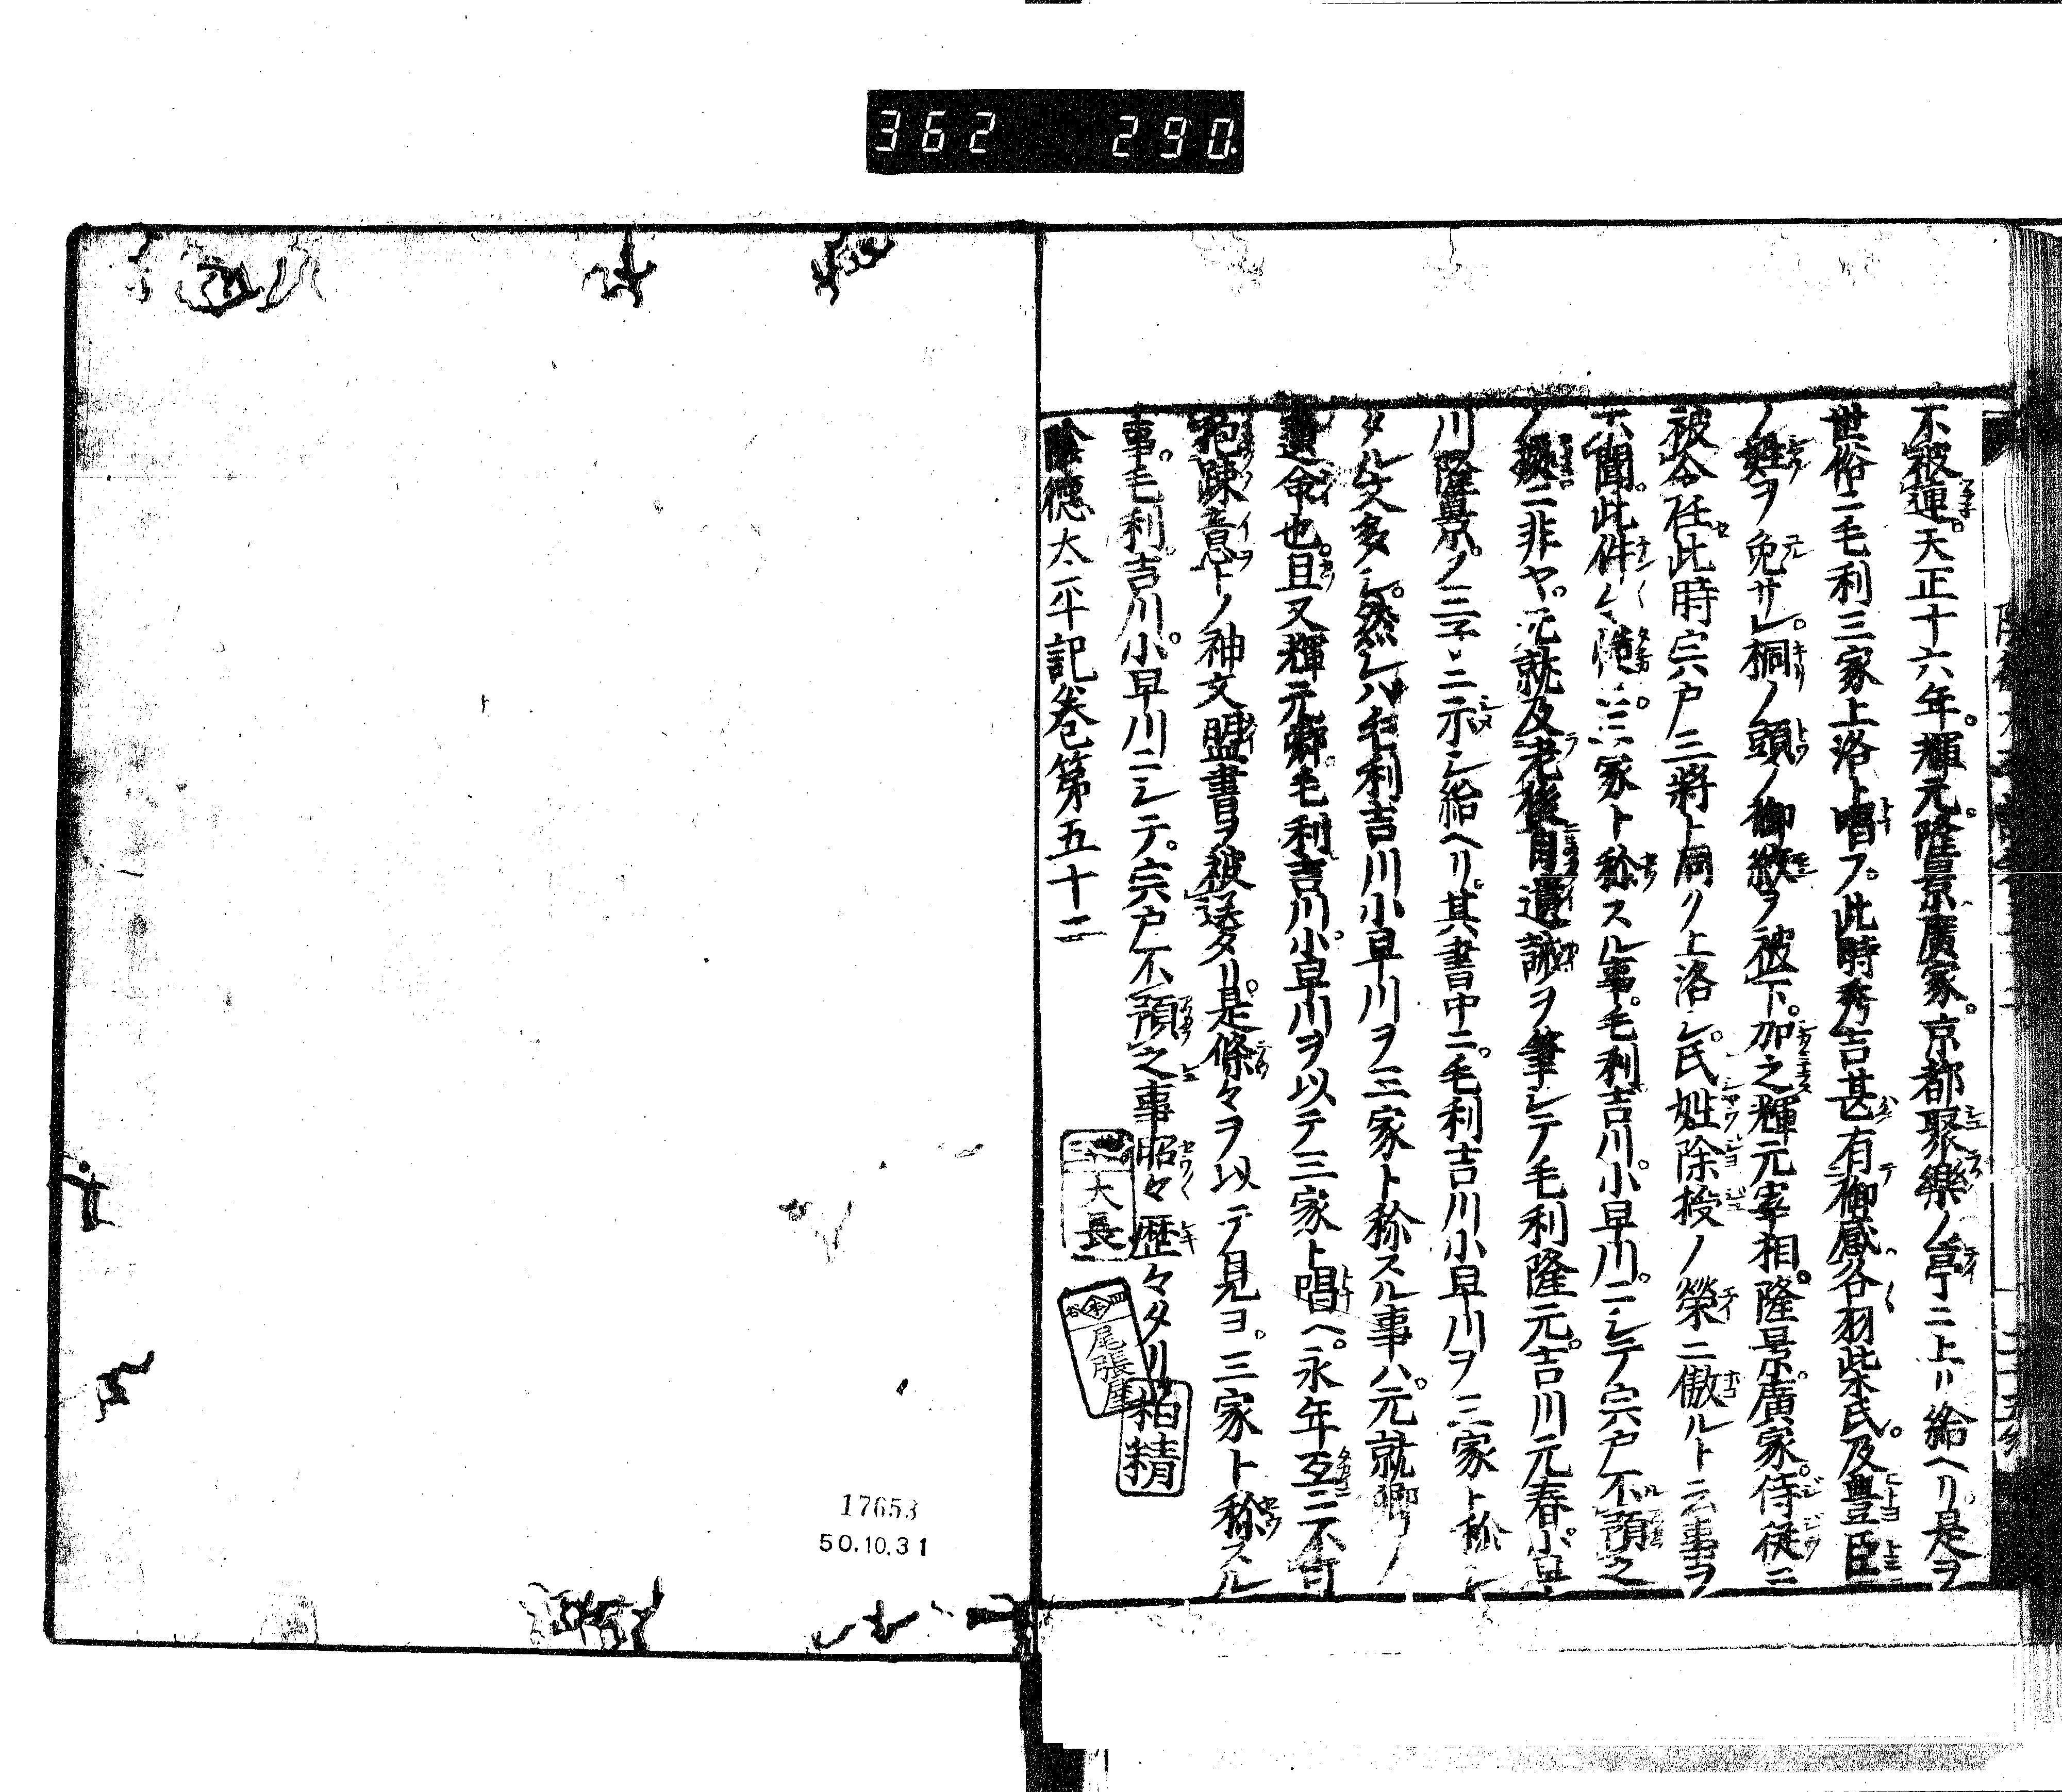 362 290
不被運。天正十六年。輝元。隆景廣家。京都聚樂ノ亭ニ上リ給ヘリ。是ヲ
世俗ニ毛利三家上洛ト唱フ。此時秀吉甚有御感各羽柴氏。及豊臣
ノ姓ヲ免サレ。桐ノ頭ノ御紋ヲ被下。加之輝元宰相。隆景。廣家。侍従ニ
被令任此時宍戸三將ト同ク上洛シ。氏姓除授ノ榮ニ傲ルト云事ヲ
不聞。此件々 三家ト称スル事。毛利吉川。小早川。ニシテ宍戸不預之
ノ 二非ヤ。元就及老後自遺誡ヲ筆シテ毛利隆元。吉川元春。小早
川隆景。ノ三子ニ示シ給ヘリ。其書中ニ。毛利吉川小早川ヲ三家ト称シ
タル文多シ。然レハ毛利吉川小早川ヲ三家ト称スル事ハ。元就卿ノ
遺命也。且又輝元卿毛利吉川。小早川ヲ以テ三家ト唱ヘ。永年互ニ不可
抱疎意トノ神文盟書ヲ被送タリ。是條々ヲ以テ見ヨ。三家ト称スル
事。毛利。吉川。小早川ニシテ。宍戸不預之事昭々歴々タリ
陰徳太平記巻第五十二
大長
尾張屋
柏精
17653
50.10.31